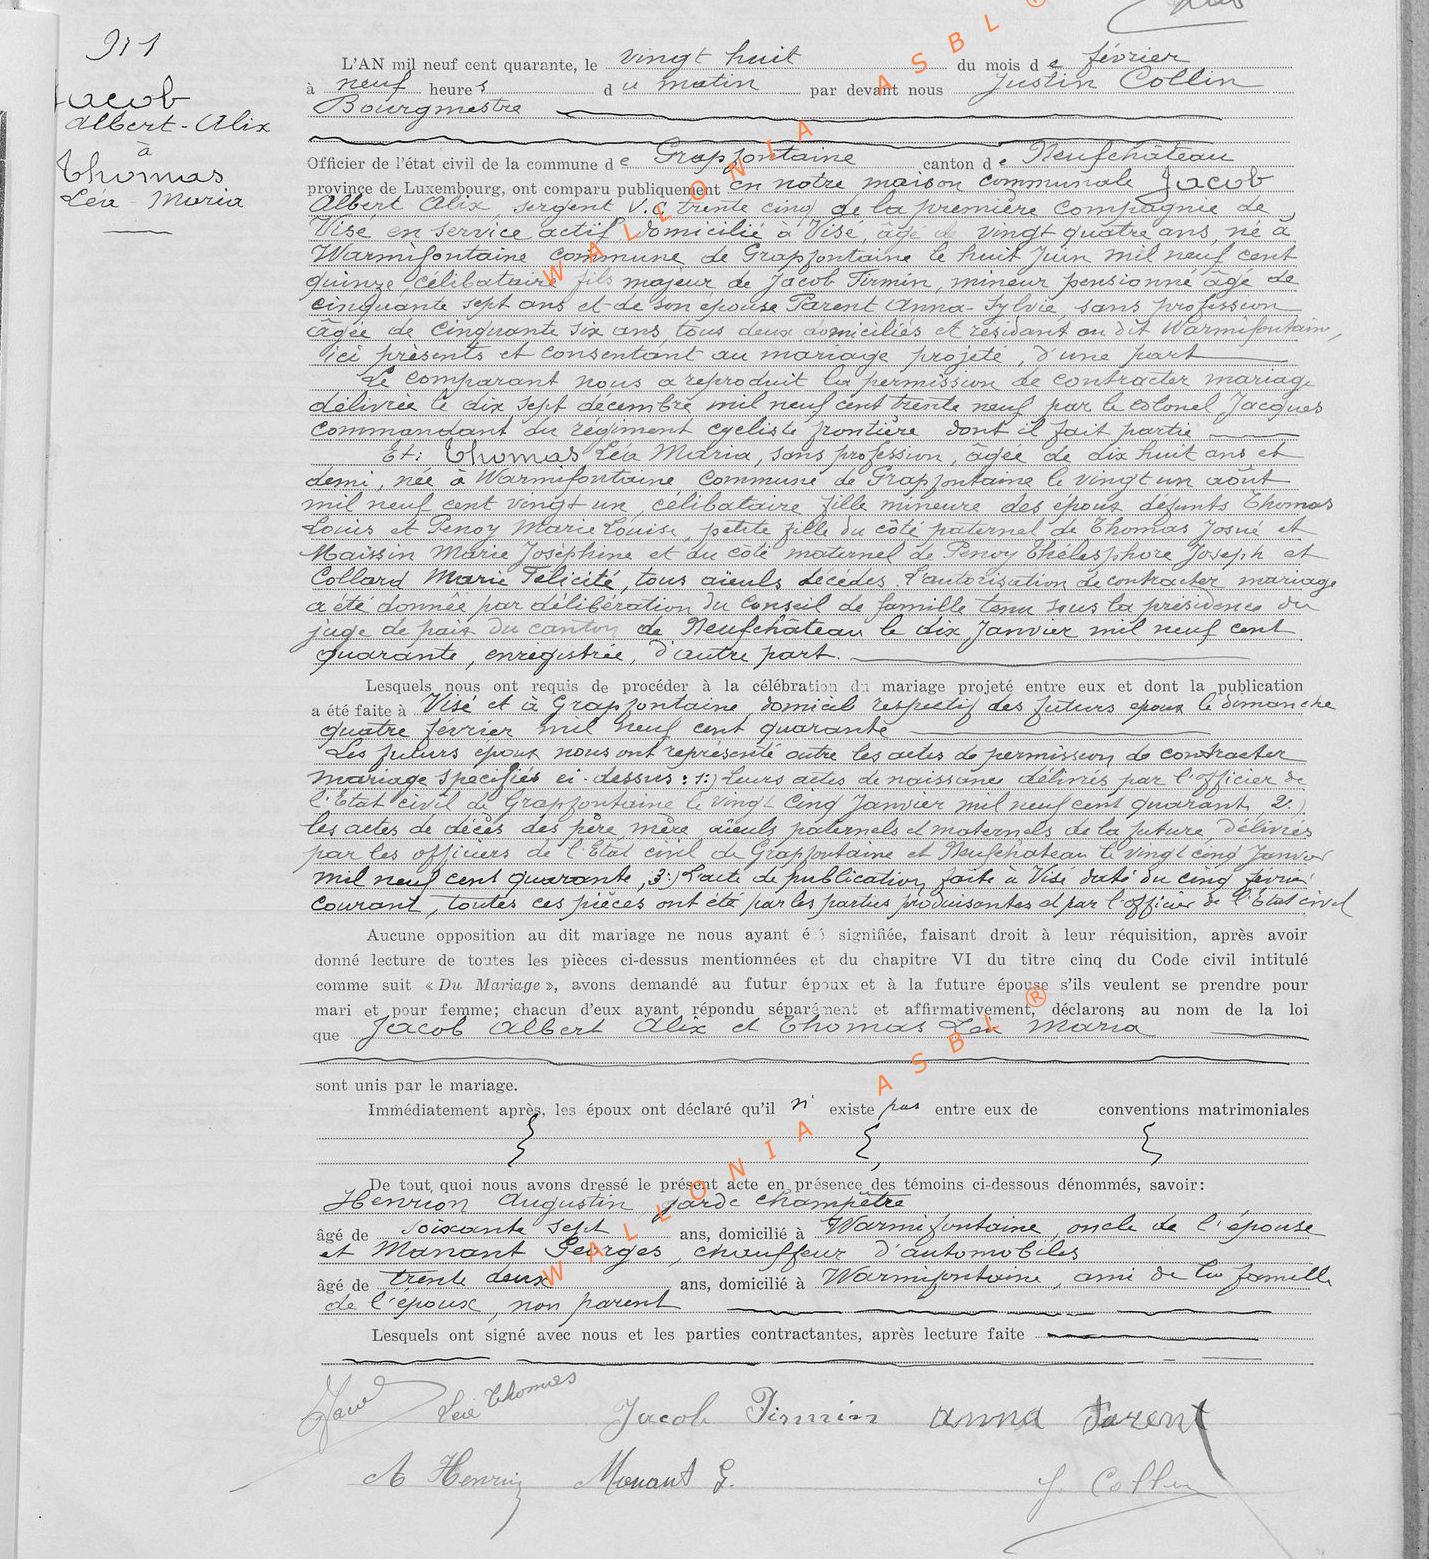 Jacob
Albert-Alix
à
Thomas
Léa-Maria
L'AN mil neuf cent quarante, le vingt huit du mois de février
à neuf heures du matin par devant nous Justin Collin
Bourgmestre
Officier de l'état civil de la commune de Grapfontaine canton de Neufchâteau
province de Luxembourg, ont comparu publiquement en notre maison communale Jacob
Albert Alix, sergent V.C trente cinq de la première compagnie de
Visé en service actif, domicilié à Visé, âgé de vingt quatre ans, né à
Warmifontaine commune de Grapfontaine le huit Juin mil neuf cent
quinze célibataire fils majeur de Jacob Firmin, mineur pensionné âgé de
cinquante sept ans et de son épouse Parent Anna-Sylvie, sans profession
âgée de cinquante six ans, tous deux domiciliés et résidant au dit Warmifontaine,
ici présents et consentant au mariage projeté, d'une part
Le comparant nous a reproduit la permission de contracter mariage
délivrée le dix sept décembre mil neuf cent trente neuf par le colonel Jacques
commandant du régiment cycliste frontière dont il fait partie
Et: Thomas Léa Maria, sans profession, âgée de dix huit ans et
demi, née à Warmifontaine commune de Grapfontaine le vingt un août
mil neuf cent vingt un, célibataire fille mineure des époux défunts Thomas
Louis et Penoy Marie Louise, petite fille du côté paternel de Thomas Josué et
Maissin Marie Joséphine et du côté maternel de Penoy Thélesphore Joseph et
Collard Marie Félicité, tous aïeuls décédés. L'autorisation de contracter mariage
a été donnée par délibération du Conseil de famille tenu sous la présidence du
juge de paix du canton de Neufchâteau le dix Janvier mil neuf cent
quarante, enregistrée, d'autre part.
Lesquels nous ont requis de procéder à la célébration du mariage projeté entre eux et dont la publication
a été faite à Visé et à Grapfontaine, domicile respectif des futurs époux le dimanche
quatre février mil neuf cent quarante
Les futurs époux nous ont représenté outre les actes de permission de contracter
mariage spécifiés ci-dessus: 1:) leurs actes de naissance délivrés par l'officier de
l'Etat civil de Grapfontaine le vingt cinq Janvier mil neuf cent quarante, 2:)
les actes de décès des père, mère, aïeuls paternels et maternels de la future, délivrés
par les officiers de l'Etat civil de Grapfontaine et Neufchâteau le vingt cinq Janvier
mil neuf cent quarante, 3:) L'acte de publication faite à Visé daté du cinq février
courant, toutes ces pièces ont été par les parties produisantes et par l'officier de l'Etat civil
Aucune opposition au dit mariage ne nous ayant été signifiée, faisant droit à leur réquisition, après avoir
donné lecture de toutes les pièces ci-dessus mentionnées et du chapitre VI du titre cinq du Code civil intitulé
comme suit « Du Mariage », avons demandé au futur époux et à la future épouse s'ils veulent se prendre pour
mari et pour femme; chacun d'eux ayant répondu séparément et affirmativement, déclarons au nom de la loi
que Jacob Albert Alix et Thomas Léa Maria
sont unis par le mariage.
Immédiatement après, les époux ont déclaré qu'il n' existe pas entre eux de conventions matrimoniales
De tout quoi nous avons dressé le présent acte en présence des témoins ci-dessous dénommés, savoir:
Henrion Augustin, garde champêtre
âgé de soixante sept ans, domicilié à Warmifontaine, oncle de l'épouse
et Manant Georges, chauffeur d'automobiles
âgé de trente deux ans, domicilié à Warmifontaine, ami de la famille
de l'époux, non parent
Lesquels ont signé avec nous et les parties contractantes, après lecture faite
Léa Thomas Jacob Firmin Anna Parent
A Henrion Manant G. J. Collin
WALLONIA ASBL ®
WALLONIA ASBL ®